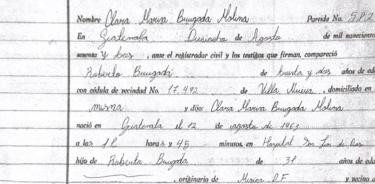 Nombre Clara Marina Brugada Molina Partida No. 582
En Guatemala Diecisiete de Agosto de mil novecientos
sesenta y tres, ante el registrador civil y los testigos que firman, compareció
Roberto Brugada de treinta y dos años de edad
con cédula de vecindad No. 17.492 de Villa Nueva, domiciliado en
misma y dijo: Clara Marina Brugada Molina
nació en Guatemala el 12 de agosto de 1963
a las 18 horas y 45 minutos en Hospital San Juan de Dios
hijo de Roberto Brugada de 31 años de edad
, originario de Mexico D.F y vecino d